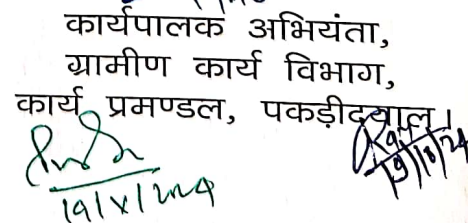 कार्यपालक अभियंता,
ग्रामीण कार्य विभाग,
कार्य प्रमण्डल, पकड़ीदयाल।
19/X/2024
19/10/24